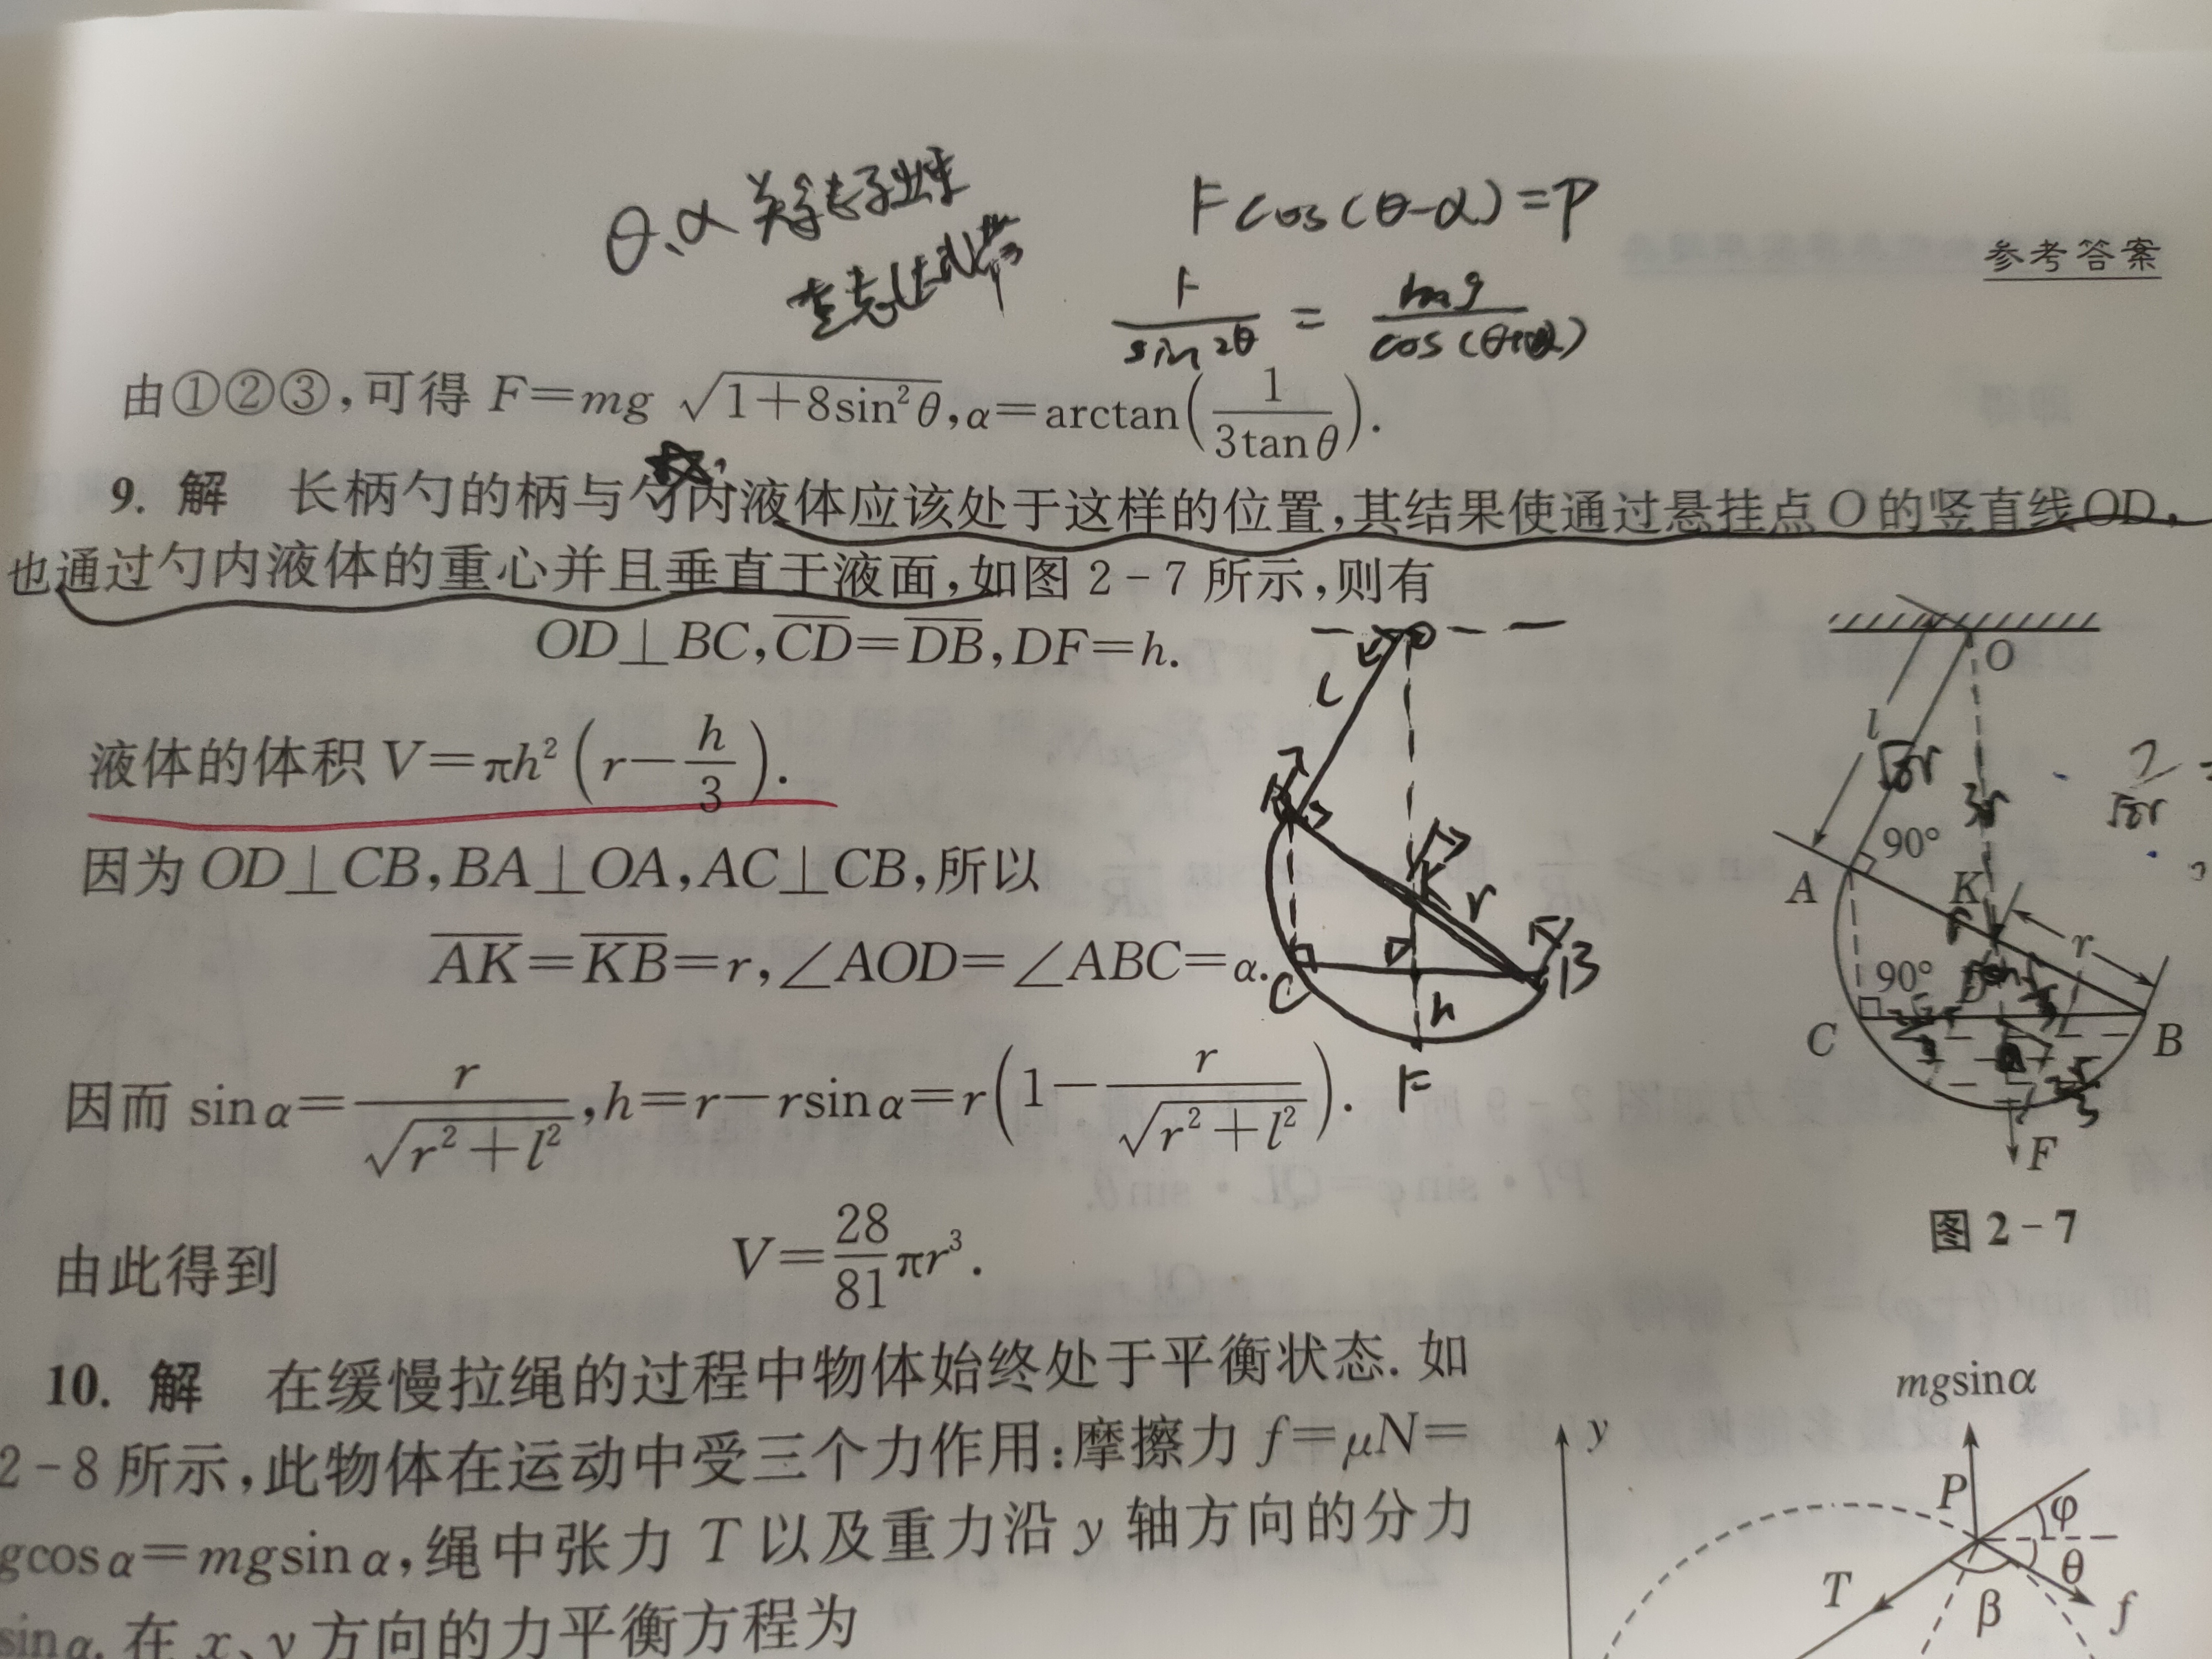 θ、α
F cos(θ-α)=P
参考答案
F/sin2θ = mg/cos(θ
由①②③,可得 F=mg √(1+8sin²θ),α=arctan(1/(3tanθ)).
9. 解 长柄勺的柄与勺内液体应该处于这样的位置,其结果使通过悬挂点 O 的竖直线 OD,
也通过勺内液体的重心并且垂直于液面,如图 2-7 所示,则有
OD⊥BC,CD=DB,DF=h.
液体的体积 V=πh²(r-h/3).
因为 OD⊥CB,BA⊥OA,AC⊥CB,所以
AK=KB=r,∠AOD=∠ABC=α.
因而 sinα=r/√(r²+l²),h=r-rsinα=r(1-r/√(r²+l²)).
由此得到 V=28/81 πr³.
O
L
A
K
r
B
C
h
F
O
l
√8r
3r
√8r
90°
A
K
r
90°
D
C
B
F
图 2-7
10. 解 在缓慢拉绳的过程中物体始终处于平衡状态. 如
2-8 所示,此物体在运动中受三个力作用:摩擦力 f=μN=
gcosα=mgsinα,绳中张力 T 以及重力沿 y 轴方向的分力
sinα. 在 x、y 方向的力平衡方程为
mgsinα
y
P
φ
θ
T
β
f